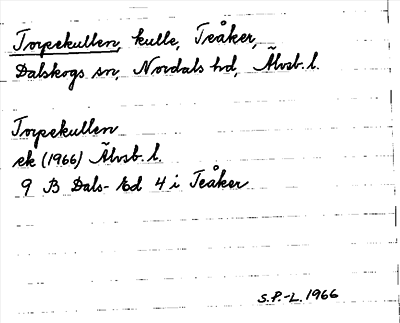 Torpekullen, kulle, Teåker,
Dalskogs sn, Nordals hd, Älvsb. l.
Torpekullen
ek (1966) Älvsb. l.
9 B Dals-Ed 4 i Teåker
S.P.-L. 1966